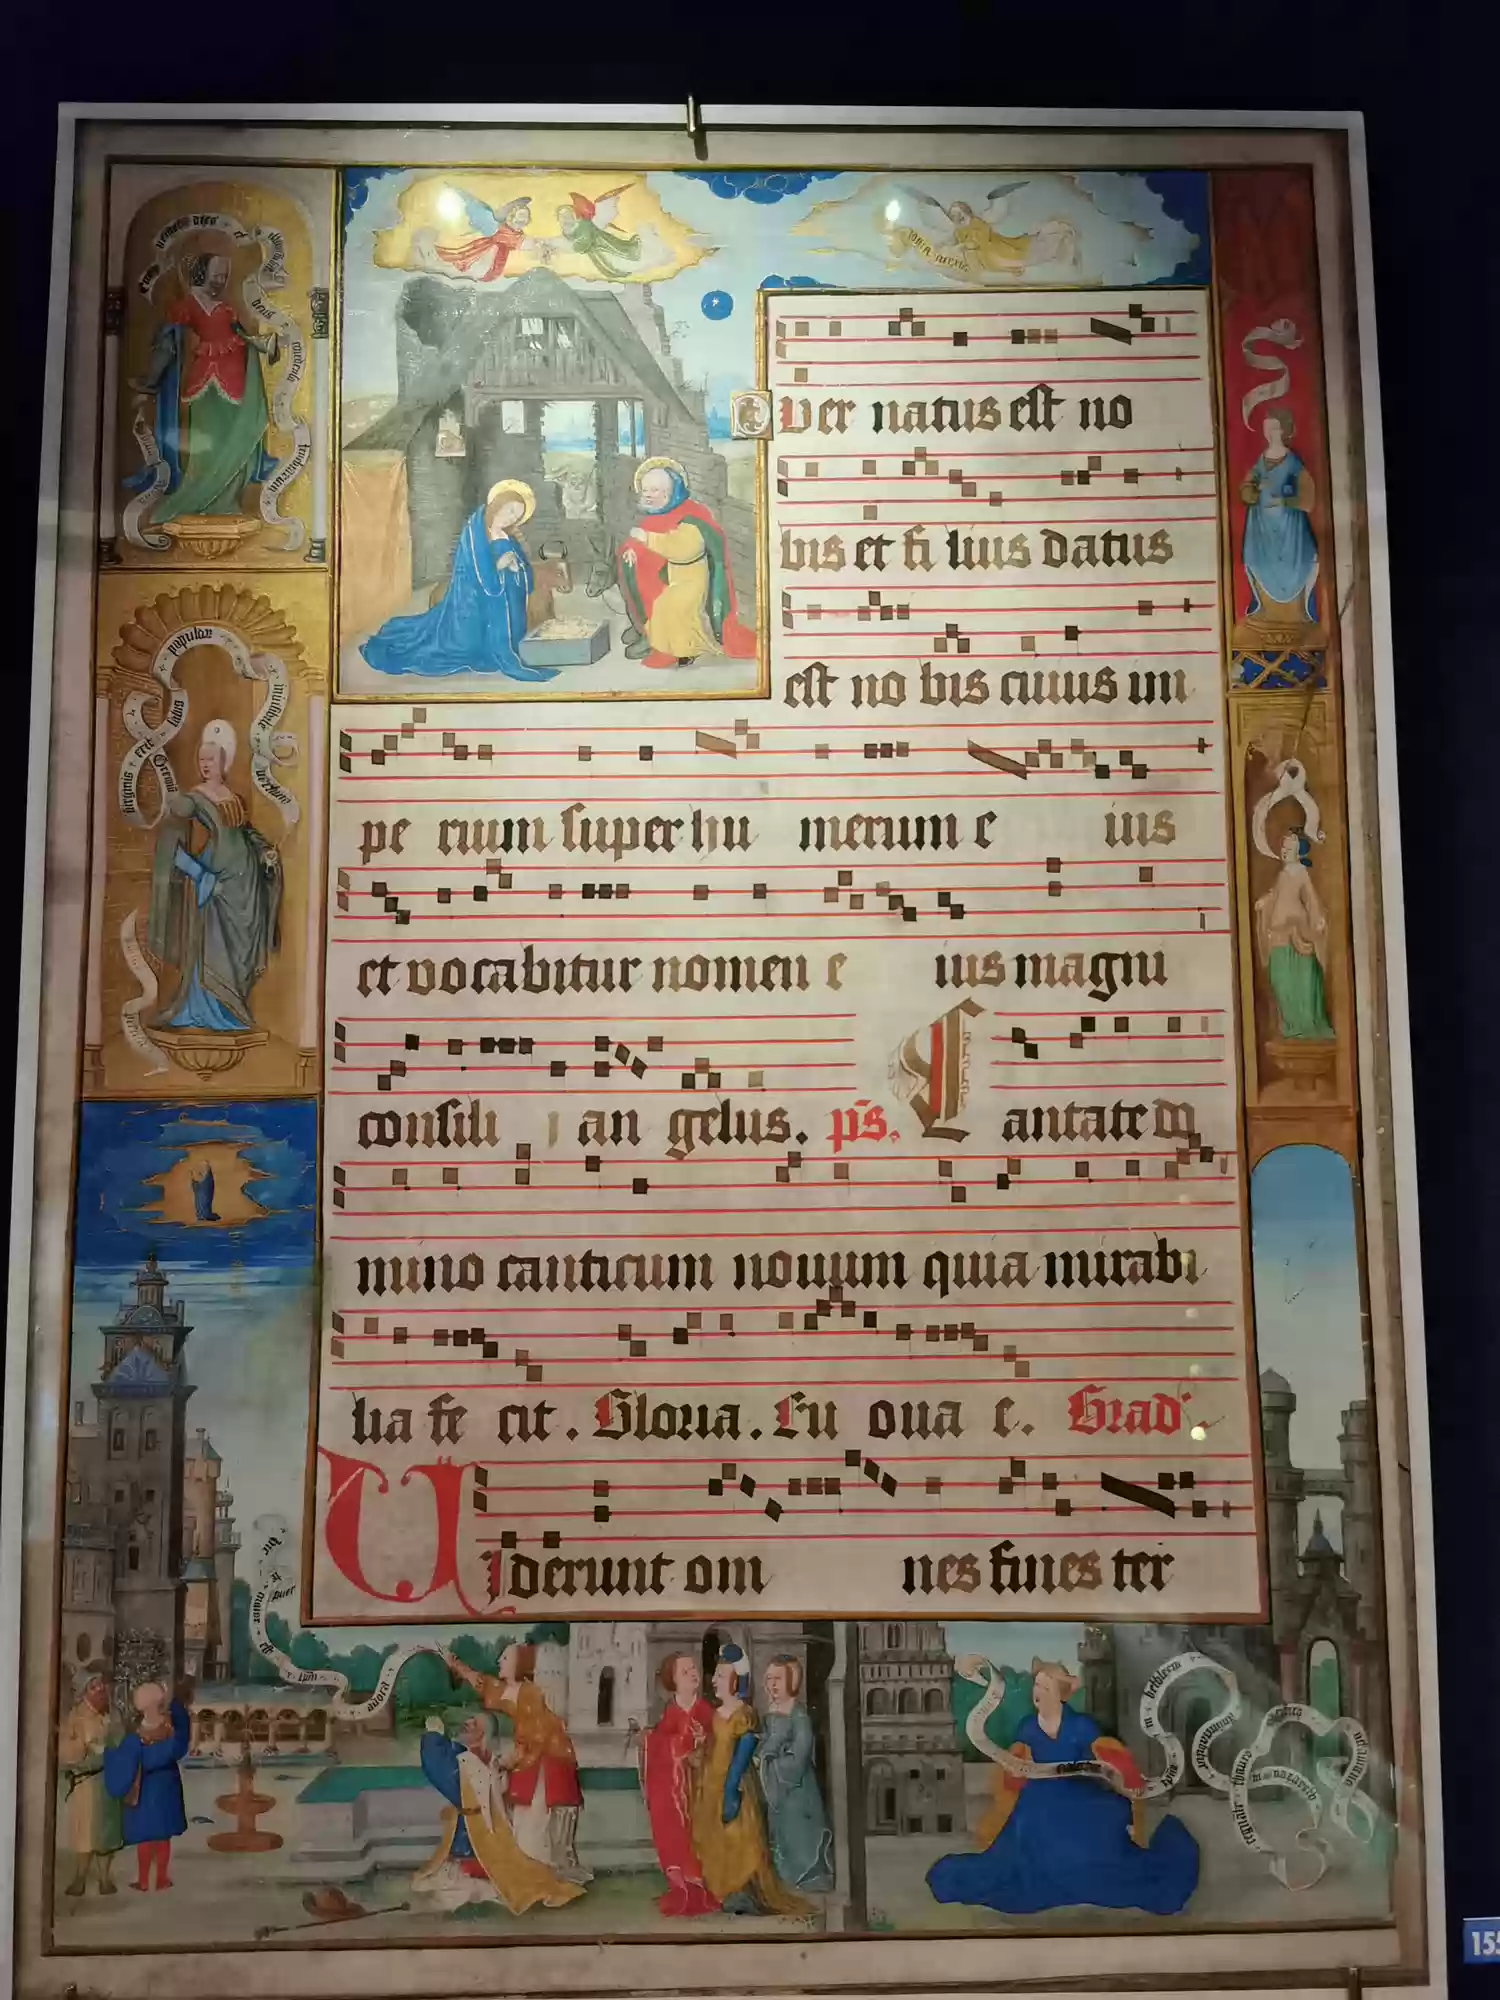 Puer natus est no
bis et fi lius datus
est no bis cuius im
pe rium super hu merum e ius
et vocabitur nomen e ius magni
consili i an gelus. ps. Cantate do
mino canticum novum quia mirabi
lia fe cit. Gloria. Eu oua e. Grad
Viderunt om nes fines ter
papulas
virginis
invisibile
puer
maior est
adora
in bethleem
in nazareth
155